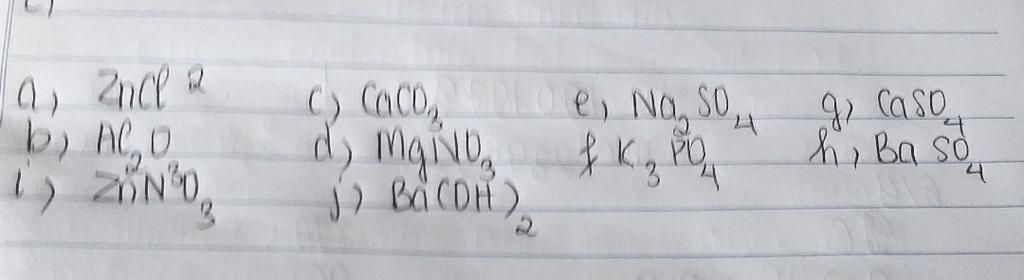 a) ZnCl 2 c) CaCO3 e) Na2SO4 g) CaSO4
b) AC2O d) MgNO3 f K3PO4 h) BaSO4
i) ZnN3O3 j) Ba(OH)2